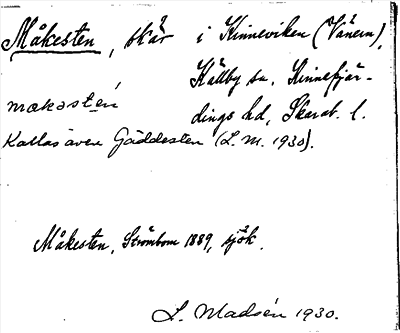 Måkesten, skär i Kinneviken (Vänern),
Källby sn. Kinnefjär-
dings hd, Skarab. l.
mɷkəstén
Kallas även Gäddesten (L. M. 1930).
Måkesten, Strömbom 1889, sjök.
L. Madsén 1930.